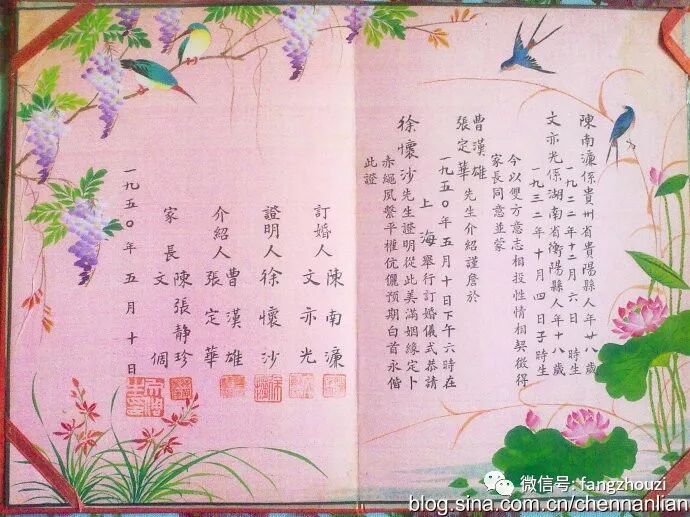 陳南濂係貴州省貴陽縣人年廿八歲
一九二二年十二月六日 時生
文亦光係湖南省衡陽縣人年十八歲
一九三二年十月四日子時生
今以雙方意志相投性情相契徵得
家長同意並蒙
曹漢雄
張定華 先生介紹謹詹於
一九五〇年五月十日下午六時在
上海舉行訂婚儀式恭請
徐懷沙先生證明從此美滿姻緣定卜
赤繩夙繫平權伉儷預期白首永偕
此證
訂婚人 陳南濂
文亦光
證明人 徐懷沙
介紹人 曹漢雄
張定華
家長 陳張靜珍
文侗
一九五〇年五月十日
微信号: fangzhouzi
blog.sina.com.cn/chennanlian